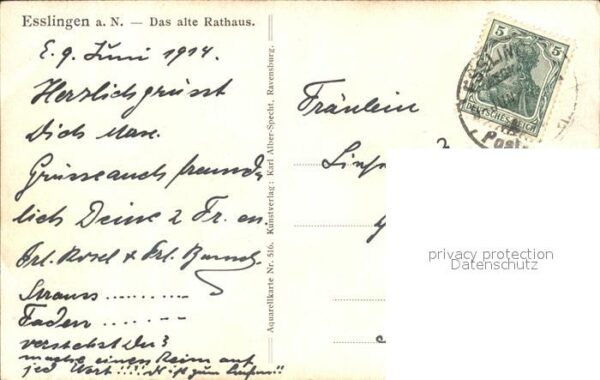 Esslingen a. N. — Das alte Rathaus.
E. 9. Juni 1914.
Herzlich grüsst
Dich Max.
Grüsse auch freund-
lich Deine 2 Fr. en.
Frl. Rosel & Frl.
Strauss ..........
Faden ..........
verstehst Du?
mache einen Reim auf
jed Wort !!!!
Kunstverlag: Karl Alber-Specht, Ravensburg.
Aquarellkarte Nr. 516.
Fräulein
5 5
DEUTSCHES REICH
ESSLIN
Post
privacy protection
Datenschutz